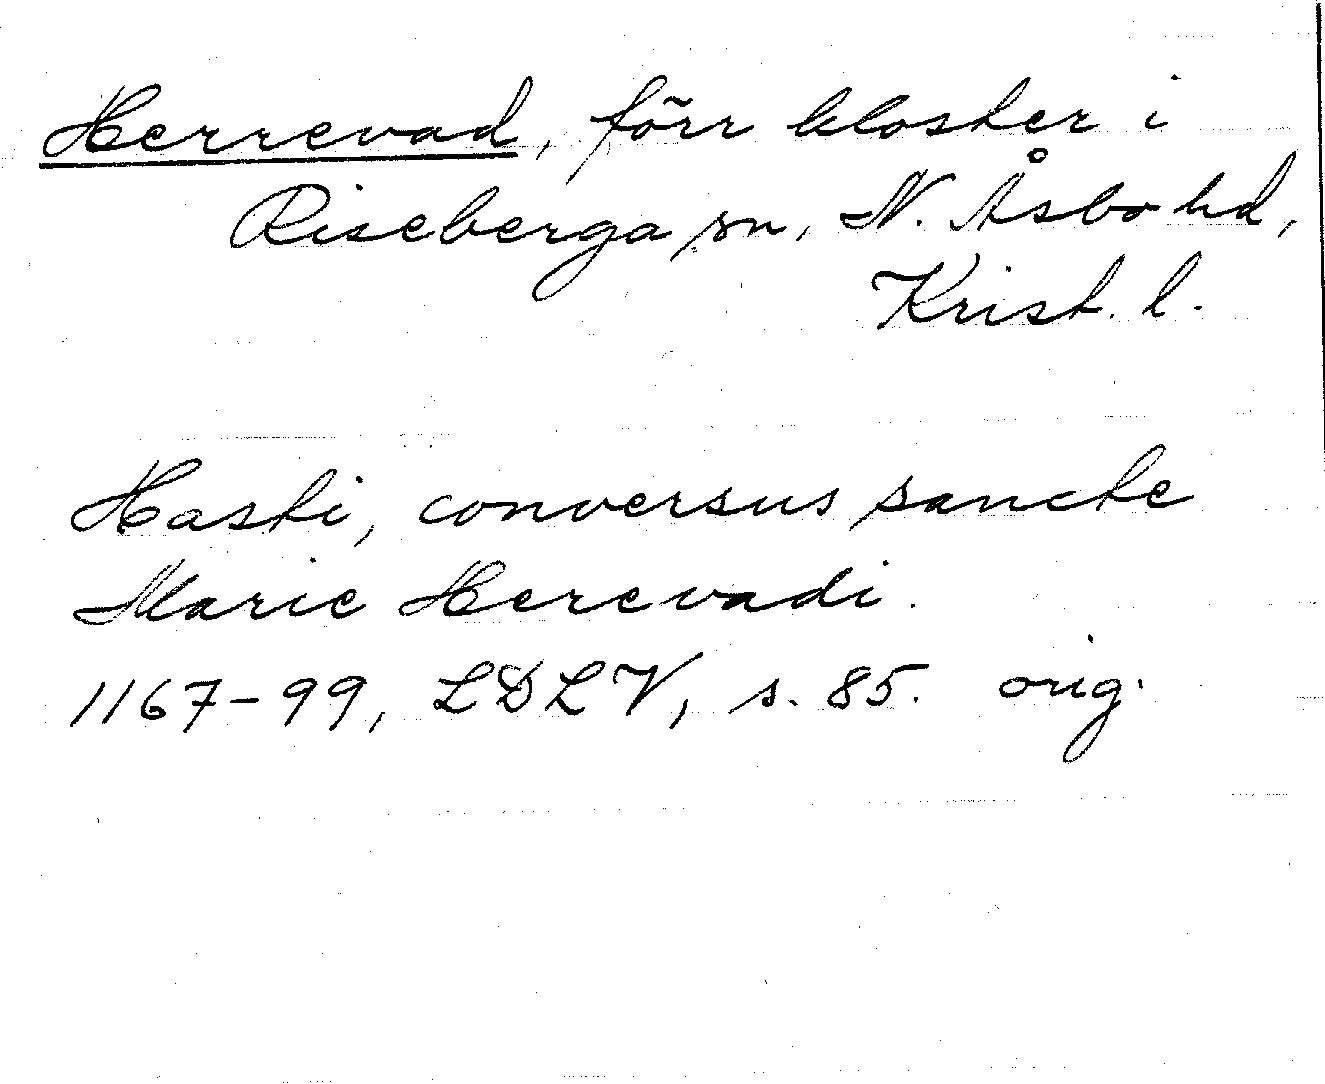 Herrevad, förr kloster i
Riseberga sn, N. Åsbo hd,
Krist. l.
Hasti, conversus sancte
Marie Herevadi.
1167-99, LDLV, s. 85. orig.